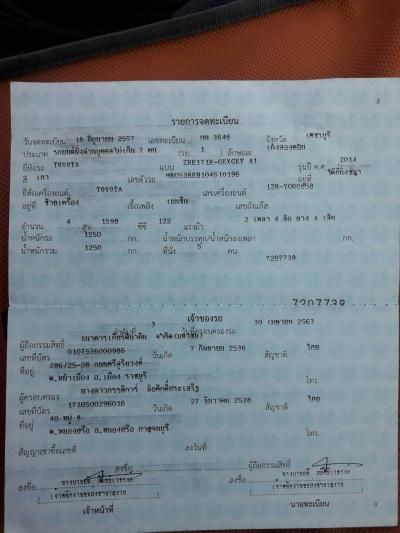 8
รายการจดทะเบียน
วันจดทะเบียน 18 มิถุนายน 2557 เลขทะเบียน กห 3646 จังหวัด เพชรบุรี
ประเภท รถยนต์นั่งส่วนบุคคลไม่เกิน 7 คน (รย. 1 ) ลักษณะ เก๋งสองตอน
ยี่ห้อรถ TOYOTA แบบ ZRE171R-GEXGKT A1 รุ่นปี ค.ศ. 2014
สี เทา เลขตัวรถ MR053REH104510196 อยู่ที่
ยี่ห้อเครื่องยนต์ TOYOTA เลขเครื่องยนต์ 1ZR-Y060858
อยู่ที่ ซ้ายเครื่อง เชื้อเพลิง เบนซิน เลขถังแก๊ส
จำนวน 4 สูบ 1598 ซีซี 122 แรงม้า 2 เพลา 4 ล้อ ยาง 4 เส้น
น้ำหนักรถ 1250 กก. น้ำหนักบรรทุก/น้ำหนักลงเพลา กก.
น้ำหนักรวม 1250 กก. ที่นั่ง 5 คน
7207738
7207738
เจ้าของรถ
วันที่ครอบครองรถ 30 เมษายน 2563
ผู้ถือกรรมสิทธิ์ ธนาคารเกียรตินาคิน จำกัด(มหาชน)
เลขที่บัตร 0107536000986 วันเกิด 7 กันยายน 2536 สัญชาติ ไทย
ที่อยู่ 286/25-28 ถนนศรีสุริยวงศ์
ต.หน้าเมือง อ.เมือง ราชบุรี โทร.
ผู้ครอบครอง
เลขที่บัตร 1710500296016 วันเกิด 27 ธันวาคม 2538 สัญชาติ ไทย
ที่อยู่ 40 หมู่ 8
ต.หนองปรือ อ.หนองปรือ กาญจนบุรี โทร.
สัญญาเช่าซื้อเลขที่ ลงวันที่
ลงชื่อ ผู้ถือกรรมสิทธิ์
ลงชื่อ ลงชื่อ
เจ้าหน้าที่ นายทะเบียน
9